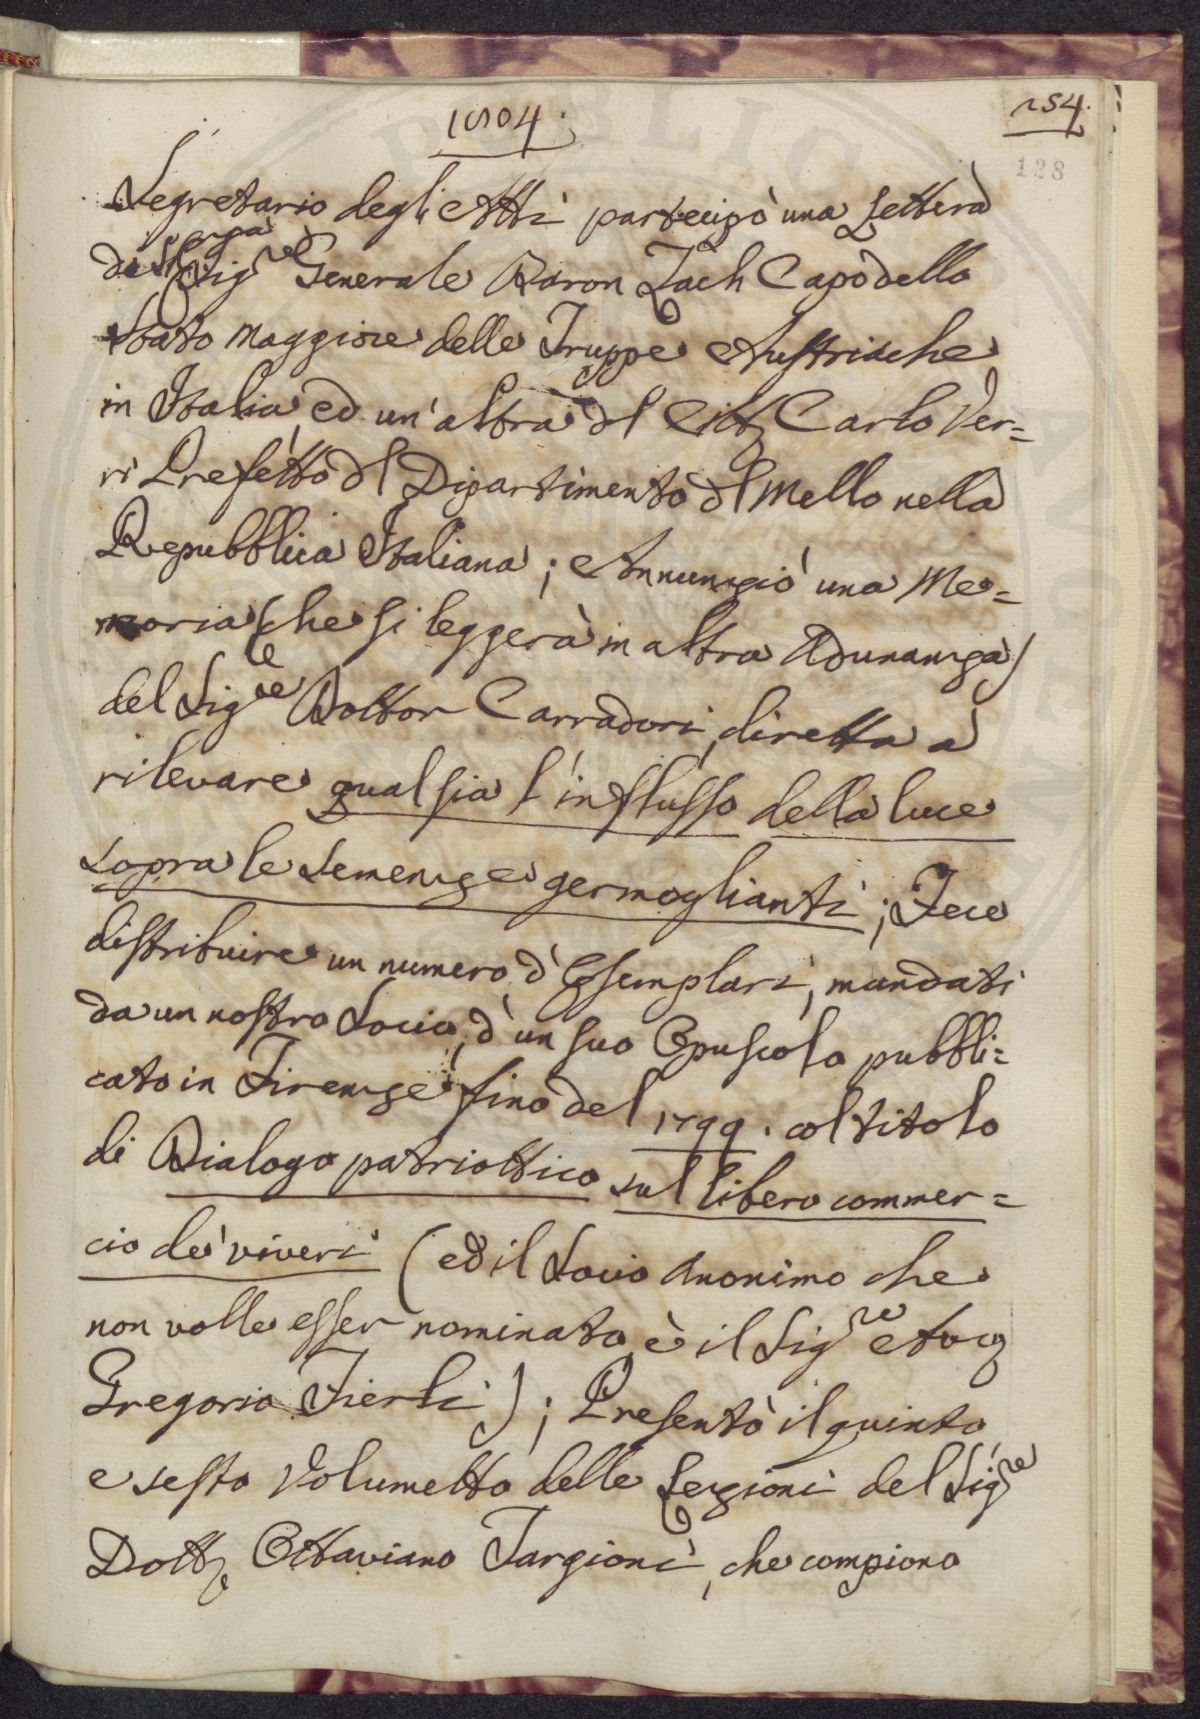 1804.
254.
128
Segretario degli Atti partecipò una Lettera
del Sig.re Generale Baron Zach Capo dello
Stato Maggiore delle Truppe Austriache
in Italia, ed un'altra dl Citt. Carlo Ver=
ri Prefetto dl Dipartimento dl Mello nella
Repubblica Italiana; Annunziò una Me=
moria (che si leggerà in altra Adunanza)
del Sig.re Dottor Carradori, diretta a
rilevare qual sia l'influsso della luce
sopra le semenze germoglianti; Fece
distribuire un numero d'Esemplari, mandati
da un nostro Socio, d'un suo Opuscolo pubbli=
cato in Firenze fino del 1799. col titolo
di Dialogo patriottico sul libero commer=
cio de' viveri (ed il Socio Anonimo che
non volle esser nominato è il Sig.re Avv.
Gregorio Fierli); Presentò il quinto
e sesto Volumetto delle Lezioni del Sig.re
Dott. Ottaviano Targioni, che compiono